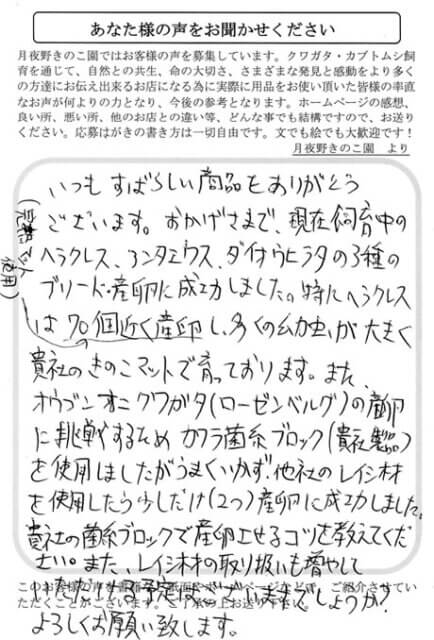 あなた様の声をお聞かせください
月夜野きのこ園ではお客様の声を募集しています。クワガタ・カブトムシ飼
育を通じて、自然との共生、命の大切さ、さまざまな発見と感動をより多く
の方達にお伝え出来るお店になる為に実際に用品をお使い頂いた皆様の率直
なお声が何よりの力となり、今後の参考となります。ホームページの感想、
良い所、悪い所、他のお店との違い等、どんな事でも結構ですので、お送り
ください。応募はがきの書き方は一切自由です。文でも絵でも大歓迎です!
月夜野きのこ園 より
いつもすばらしい商品をありがとう
ございます。おかげさまで、現在飼育中の
ヘラクレス、コンタミウス、ダイオウヒラタの3種の
ブリード・産卵に成功しました。特にヘラクレス
は70個近く産卵し、多くの幼虫が大きく
使用)
貴社のきのこマットで育っております。また、
オウゴンオニクワガタ(ローゼンベルグ)の産卵
に挑戦するためカワラ菌糸ブロック(貴社製品)
を使用しましたがうまくいかず、他社のレイシ材
を使用したら少しだけ(2つ)産卵に成功しました。
貴社の菌糸ブロックで産卵させるコツを教えてくだ
さい。また、レイシ材の取り扱いも増やして
いただける予定はございますでしょうか?
このお客様の声を書籍
ページなどに、ご紹介させてい
ただくことがございます。ご了承の上お送り下さい。
よろしくお願い致します。